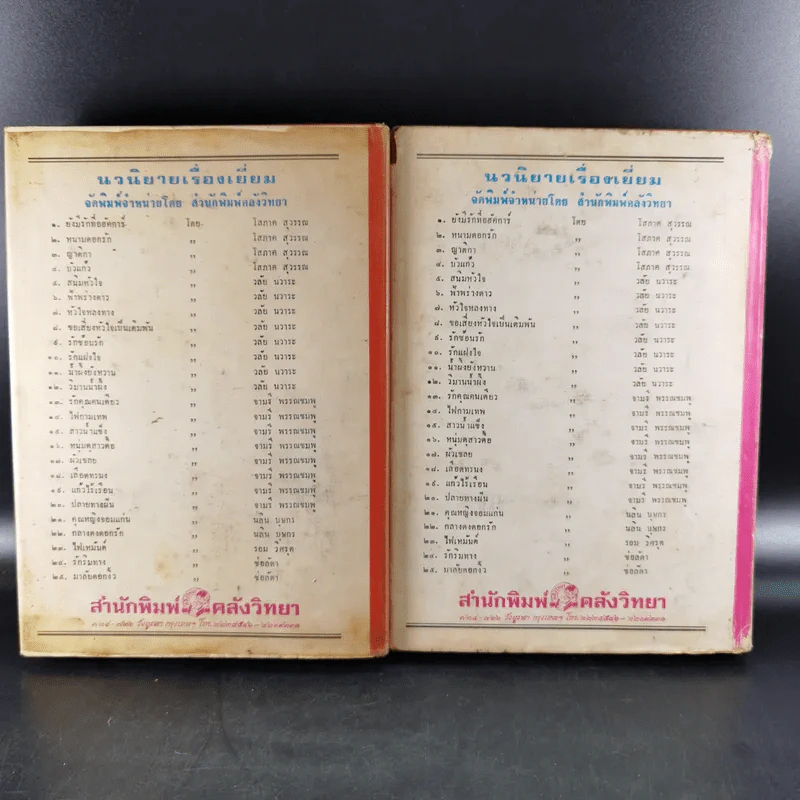 นวนิยายเรื่องเยี่ยม
จัดพิมพ์จำหน่ายโดย สำนักพิมพ์คลังวิทยา
๑. ยังมีรักที่อัคการ์ โดย โสภาค สุวรรณ
๒. หนามดอกรัก ,, โสภาค สุวรรณ
๓. ญาติกา ,, โสภาค สุวรรณ
๔. บัวแก้ว ,, โสภาค สุวรรณ
๕. สนิมหัวใจ ,, วลัย นวาระ
๖. ฟ้าพร่างดาว ,, วลัย นวาระ
๗. หัวใจหลงทาง ,, วลัย นวาระ
๘. ขอเสี่ยงหัวใจเป็นเดิมพัน ,, วลัย นวาระ
๙. รักซ้อนรัก ,, วลัย นวาระ
๑๐. รักแฝงใจ ,, วลัย นวาระ
๑๑. น้ำผึ้งยังหวาน ,, วลัย นวาระ
๑๒. วิมานน้ำผึ้ง ,, วลัย นวาระ
๑๓. รักคุณคนเดียว ,, จามรี พรรณชมพู
๑๔. ไฟกามเทพ ,, จามรี พรรณชมพู
๑๕. สาวน้ำแข็ง ,, จามรี พรรณชมพู
๑๖. หนุ่มดุสาวดื้อ ,, จามรี พรรณชมพู
๑๗. ผัวเชลย ,, จามรี พรรณชมพู
๑๘. เลือดทรนง ,, จามรี พรรณชมพู
๑๙. แก้วไร้เรือน ,, จามรี พรรณชมพู
๒๐. ปลายทางฝัน ,, จามรี พรรณชมพู
๒๑. คุณหญิงจอมแก่น ,, นลิน บุษกร
๒๒. กลางดงดอกรัก ,, นลิน บุษกร
๒๓. ไฟเหมันต์ ,, รอม
๒๔. รักริมทาง ,, ช่อลัดา
๒๕. มาลัยดอกงิ้ว ,, ช่อลัดา
สำนักพิมพ์ คลังวิทยา
วังบูรพา กรุงเทพฯ โทร.
นวนิยายเรื่องเยี่ยม
จัดพิมพ์จำหน่ายโดย สำนักพิมพ์คลังวิทยา
๑. ยังมีรักที่อัคการ์ โดย โสภาค สุวรรณ
๒. หนามดอกรัก ,, โสภาค สุวรรณ
๓. ญาติกา ,, โสภาค สุวรรณ
๔. บัวแก้ว ,, โสภาค สุวรรณ
๕. สนิมหัวใจ ,, วลัย นวาระ
๖. ฟ้าพร่างดาว ,, วลัย นวาระ
๗. หัวใจหลงทาง ,, วลัย นวาระ
๘. ขอเสี่ยงหัวใจเป็นเดิมพัน ,, วลัย นวาระ
๙. รักซ้อนรัก ,, วลัย นวาระ
๑๐. รักแฝงใจ ,, วลัย นวาระ
๑๑. น้ำผึ้งยังหวาน ,, วลัย นวาระ
๑๒. วิมานน้ำผึ้ง ,, วลัย นวาระ
๑๓. รักคุณคนเดียว ,, จามรี พรรณชมพู
๑๔. ไฟกามเทพ ,, จามรี พรรณชมพู
๑๕. สาวน้ำแข็ง ,, จามรี พรรณชมพู
๑๖. หนุ่มดุสาวดื้อ ,, จามรี พรรณชมพู
๑๗. ผัวเชลย ,, จามรี พรรณชมพู
๑๘. เลือดทรนง ,, จามรี พรรณชมพู
๑๙. แก้วไร้เรือน ,, จามรี พรรณชมพู
๒๐. ปลายทางฝัน ,, จามรี พรรณชมพู
๒๑. คุณหญิงจอมแก่น ,, นลิน บุษกร
๒๒. กลางดงดอกรัก ,, นลิน บุษกร
๒๓. ไฟเหมันต์ ,, รอม
๒๔. รักริมทาง ,, ช่อลัดา
๒๕. มาลัยดอกงิ้ว ,, ช่อลัดา
สำนักพิมพ์ คลังวิทยา
วังบูรพา กรุงเทพฯ โทร.